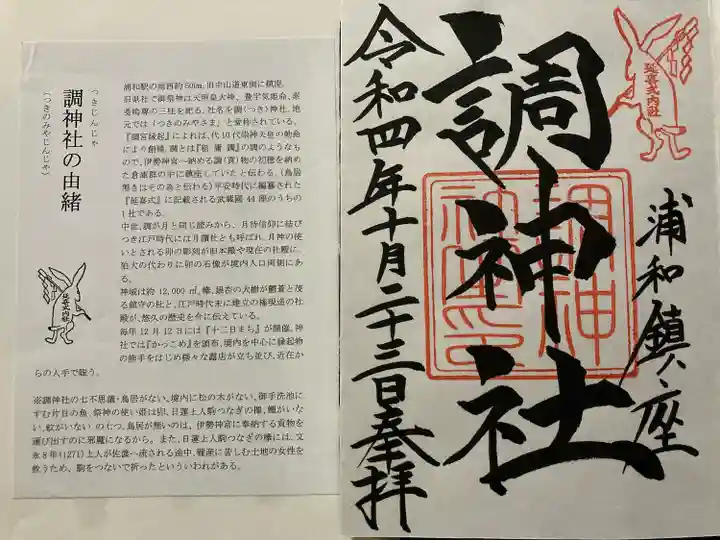 つきじんじゃ
調神社の由緒
(つきのみやじんじゃ)
浦和駅の南西約500m、旧中山道東側に鎮座。
旧県社で御祭神は天照皇大神、豊宇気姫命、素
戔嗚尊の三柱を祀る。社名を調(つき)神社、地
元では「つきのみやさま」と愛称されている。
『調宮縁起』によれば、代10代崇神天皇の勅命
により創建。調とは『租 庸 調』の調のようなも
ので、伊勢神宮へ納める調(貢)物の初穂を納め
た倉庫群の中に鎮座していたと伝わる。(鳥居
無きはその為と伝わる)平安時代に編纂された
『延喜式』に記載される武蔵國44座のうちの
1社である。
中世、調が月と同じ読みから、月待信仰に結び
つき江戸時代には月讀社とも呼ばれ、月神の使
いとされる卯の彫刻が旧本殿や現在の社殿に、
狛犬の代わりに卯の石像が境内入口両側にあ
る。
神域は約12,000㎡。欅、銀杏の大樹が鬱蒼と茂
る鎮守の杜と、江戸時代末に建立の権現造の社
殿が、悠久の歴史を今に伝えている。
毎年12月12日には『十二日まち』が開催。神
社では『かっこめ』を頒布、境内を中心に縁起物
の熊手をはじめ様々な露店が立ち並び、近在か
らの人手で賑う。
※調神社の七不思議・鳥居がない、境内に松の木がない、御手洗池に
すむ片目の魚、祭神の使い姫は卯、日蓮上人駒つなぎの欅、蠅がいな
い、蚊がいない の七つ。鳥居が無いのは、伊勢神宮に奉納する貢物を
運び出すのに邪魔になるから。また、日蓮上人駒つなぎの欅には、文
永8年(1271)上人が佐渡へ流される途中、難産に苦しむ土地の女性を
救うため、駒をつないで祈ったといういわれがある。
延喜式内社
延喜式内社
浦和鎮座
調神社
令和四年十月二十三日奉拝